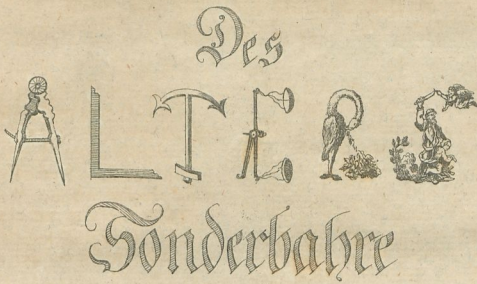 Des
ALTERS
Sonderbahre